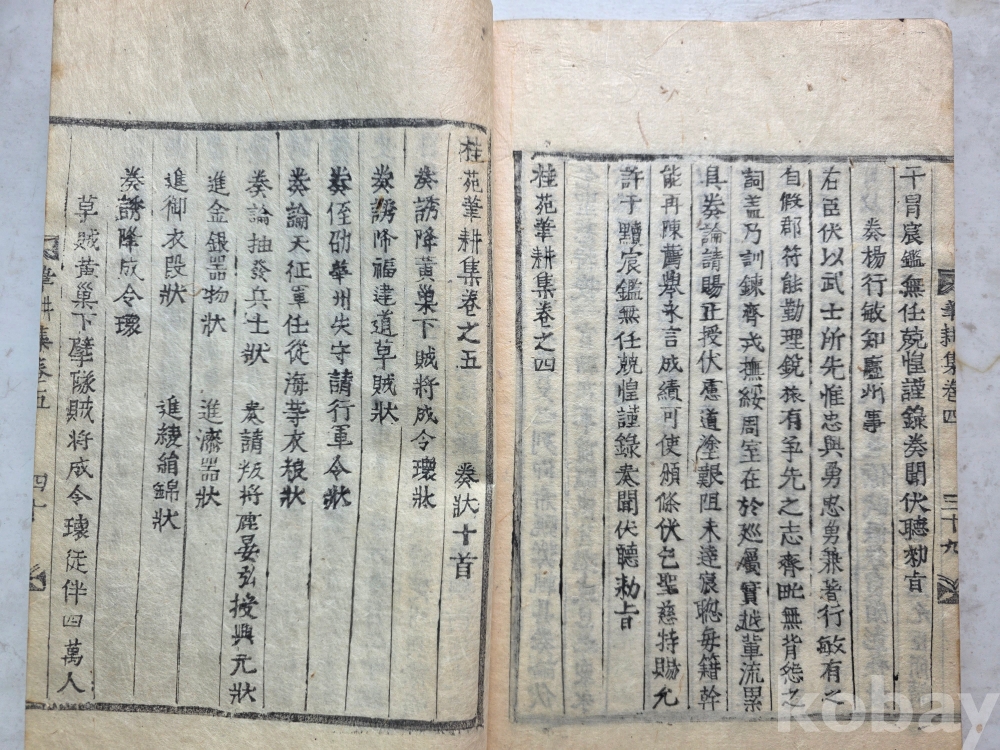 干冒宸鑑無任兢惶謹錄奏聞伏聽勑旨
奏楊行敏知廬州事
右臣伏以武士所先惟忠與勇忠勇兼著行敏有之
自假郡符能勤理鏡旅有爭先之志齊甿無背㤪之
詞盖乃訓鍊齊戎撫綏周室在於廵属實越輩流累
具奏論請賜正授伏慮道塗艱阻未達宸聦每籍幹
能再陳薦擧永言成績可使頒條伏乞聖慈特賜允
許干黷宸鑑無任兢惶謹錄奏聞伏聽勑旨
桂苑筆耕集卷之四
筆耕集卷四
三十九
桂苑筆耕集卷之五
奏狀十首
奏誘降黃巢下賊將成令瓌狀
奏誘降福建道草賊狀
奏侄劭華州失守請行軍令狀
奏論天征軍任從海等衣粮狀
奏論抽發兵士狀
奏請叛將鹿晏弘授興元狀
進金銀器物狀
進漆器狀
進御衣段狀
進綾絹錦狀
奏誘降成令瓌
草賊黃巢下擘隊賊將成令瓌徒伴四萬人
筆耕集卷五
四十
kobay